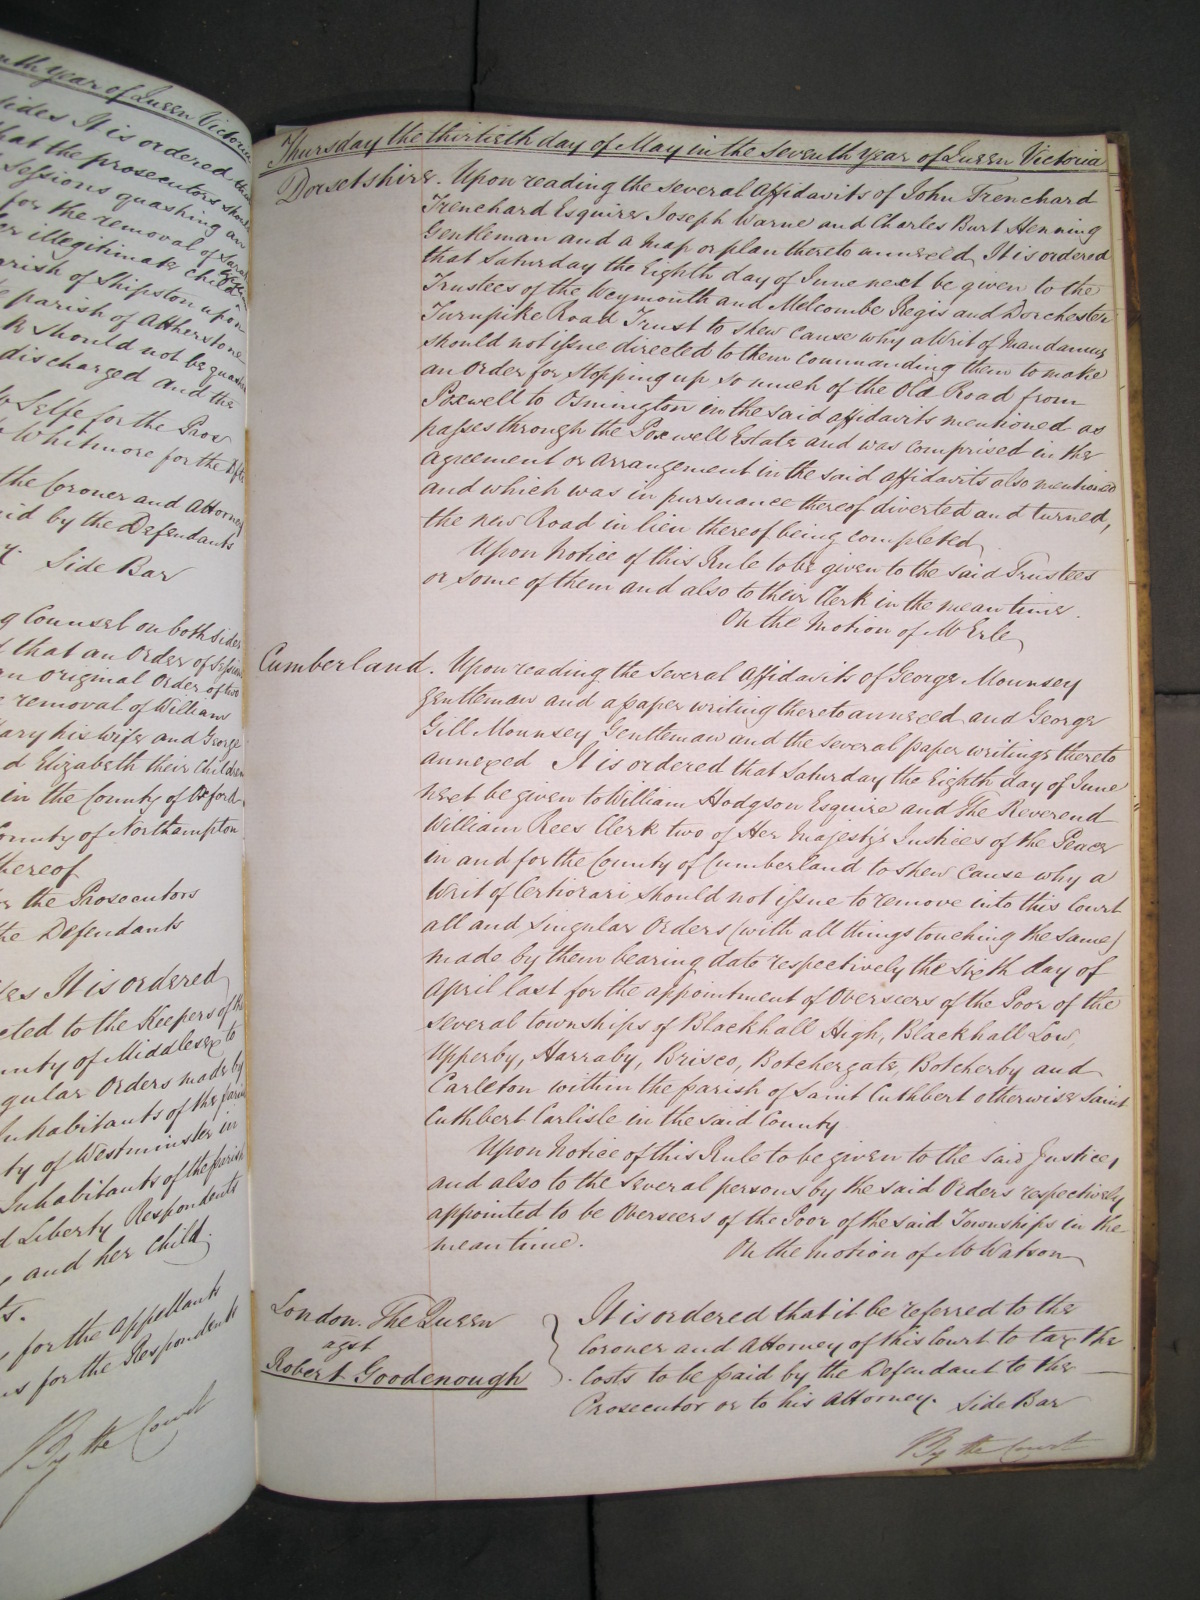 nth year of Queen Victoria
sides It is ordered that
that the prosecutors should
Sessions quashing an
for the removal of Sarah
her illegitimate child
parish of Shipston upon
parish of Atherstone
should not be quashed
discharged and the
Selfe for the Pros
Whitmore for the Defts
the Coroner and Attorney
paid by the Defendants
Side Bar
g Counsel on both sides
that an Order of Sessions
an original Order of two
removal of William
Mary his wife and George
d Elizabeth their Children
in the County of Oxford
County of Northampton
thereof
the Prosecutors
the Defendants
It is ordered
cted to the Keepers of the
unty of Middlesex to
gular Orders made by
Inhabitants of the parish
ty of Westminster in
Inhabitants of the parish
d Liberty Respondents
and her Child
ts.
for the Appellants
for the Respondents
By the Court
Thursday the thirtieth day of May in the Seventh year of Queen Victoria
Dorsetshire. Upon reading the several Affidavits of John Trenchard
Trenchard Esquire Joseph Warne and Charles Burt Henning
Gentleman and a map or plan thereto annexed It is ordered
that Saturday the Eighth day of June next be given to the
Trustees of the Weymouth and Melcombe Regis and Dorchester
Turnpike Road Trust to shew cause why a Writ of Mandamus
should not issue directed to them commanding them to make
an Order for stopping up so much of the Old Road from
Poxwell to Osmington in the said affidavits mentioned as
passes through the Poxwell Estate and was comprised in the
agreement or arrangement in the said affidavits also mentioned
and which was in pursuance thereof diverted and turned,
the new Road in lieu thereof being completed
Upon Notice of this Rule to be given to the said Trustees
or some of them and also to their Clerk in the mean time.
On the Motion of Mr Erle
Cumberland. Upon reading the several Affidavits of George Mounsey
gentleman and a paper writing thereto annexed and George
Gill Mounsey Gentleman and the several paper writings thereto
annexed It is ordered that Saturday the Eighth day of June
next be given to William Hodgson Esquire and The Reverend
William Rees Clerk two of Her Majesty's Justices of the Peace
in and for the County of Cumberland to shew cause why a
Writ of Certiorari should not issue to remove into this Court
all and singular Orders (with all things touching the same)
made by them bearing date respectively the sixth day of
April last for the appointment of Overseers of the Poor of the
several townships of Blackhall High, Blackhall Low,
Upperby, Harraby, Brisco, Botchergate, Botcherby and
Carleton within the parish of Saint Cuthbert otherwise Saint
Cuthbert Carlisle in the said County
Upon Notice of this Rule to be given to the said Justices,
and also to the several persons by the said Orders respectively
appointed to be Overseers of the Poor of the said Townships in the
mean time. On the Motion of Mr Watson
London. The Queen
agst
Robert Goodenough
It is ordered that it be referred to the
Coroner and Attorney of this Court to tax the
Costs to be paid by the Defendant to the
Prosecutor or to his Attorney. Side Bar
By the Court